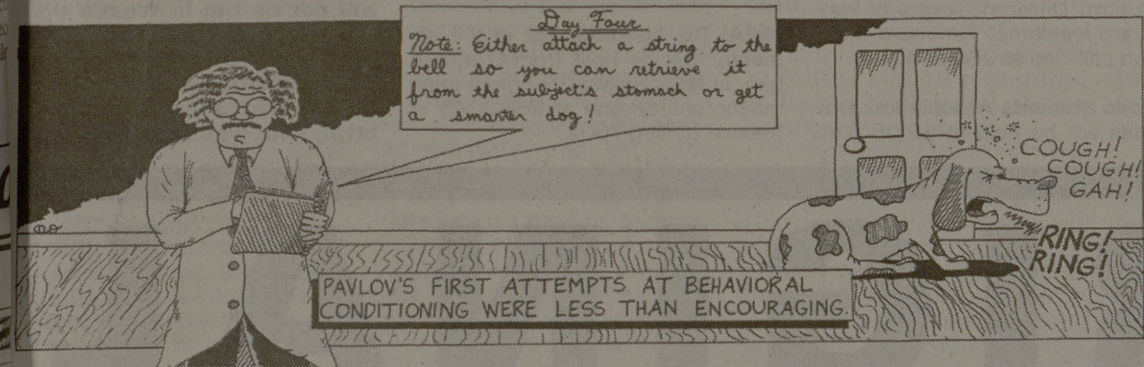 Day Four
Note: Either attach a string to the
bell so you can retrieve it
from the subject's stomach or get
a smarter dog!
COUGH!
COUGH!
GAH!
RING!
RING!
PAVLOV'S FIRST ATTEMPTS AT BEHAVIORAL
CONDITIONING WERE LESS THAN ENCOURAGING.